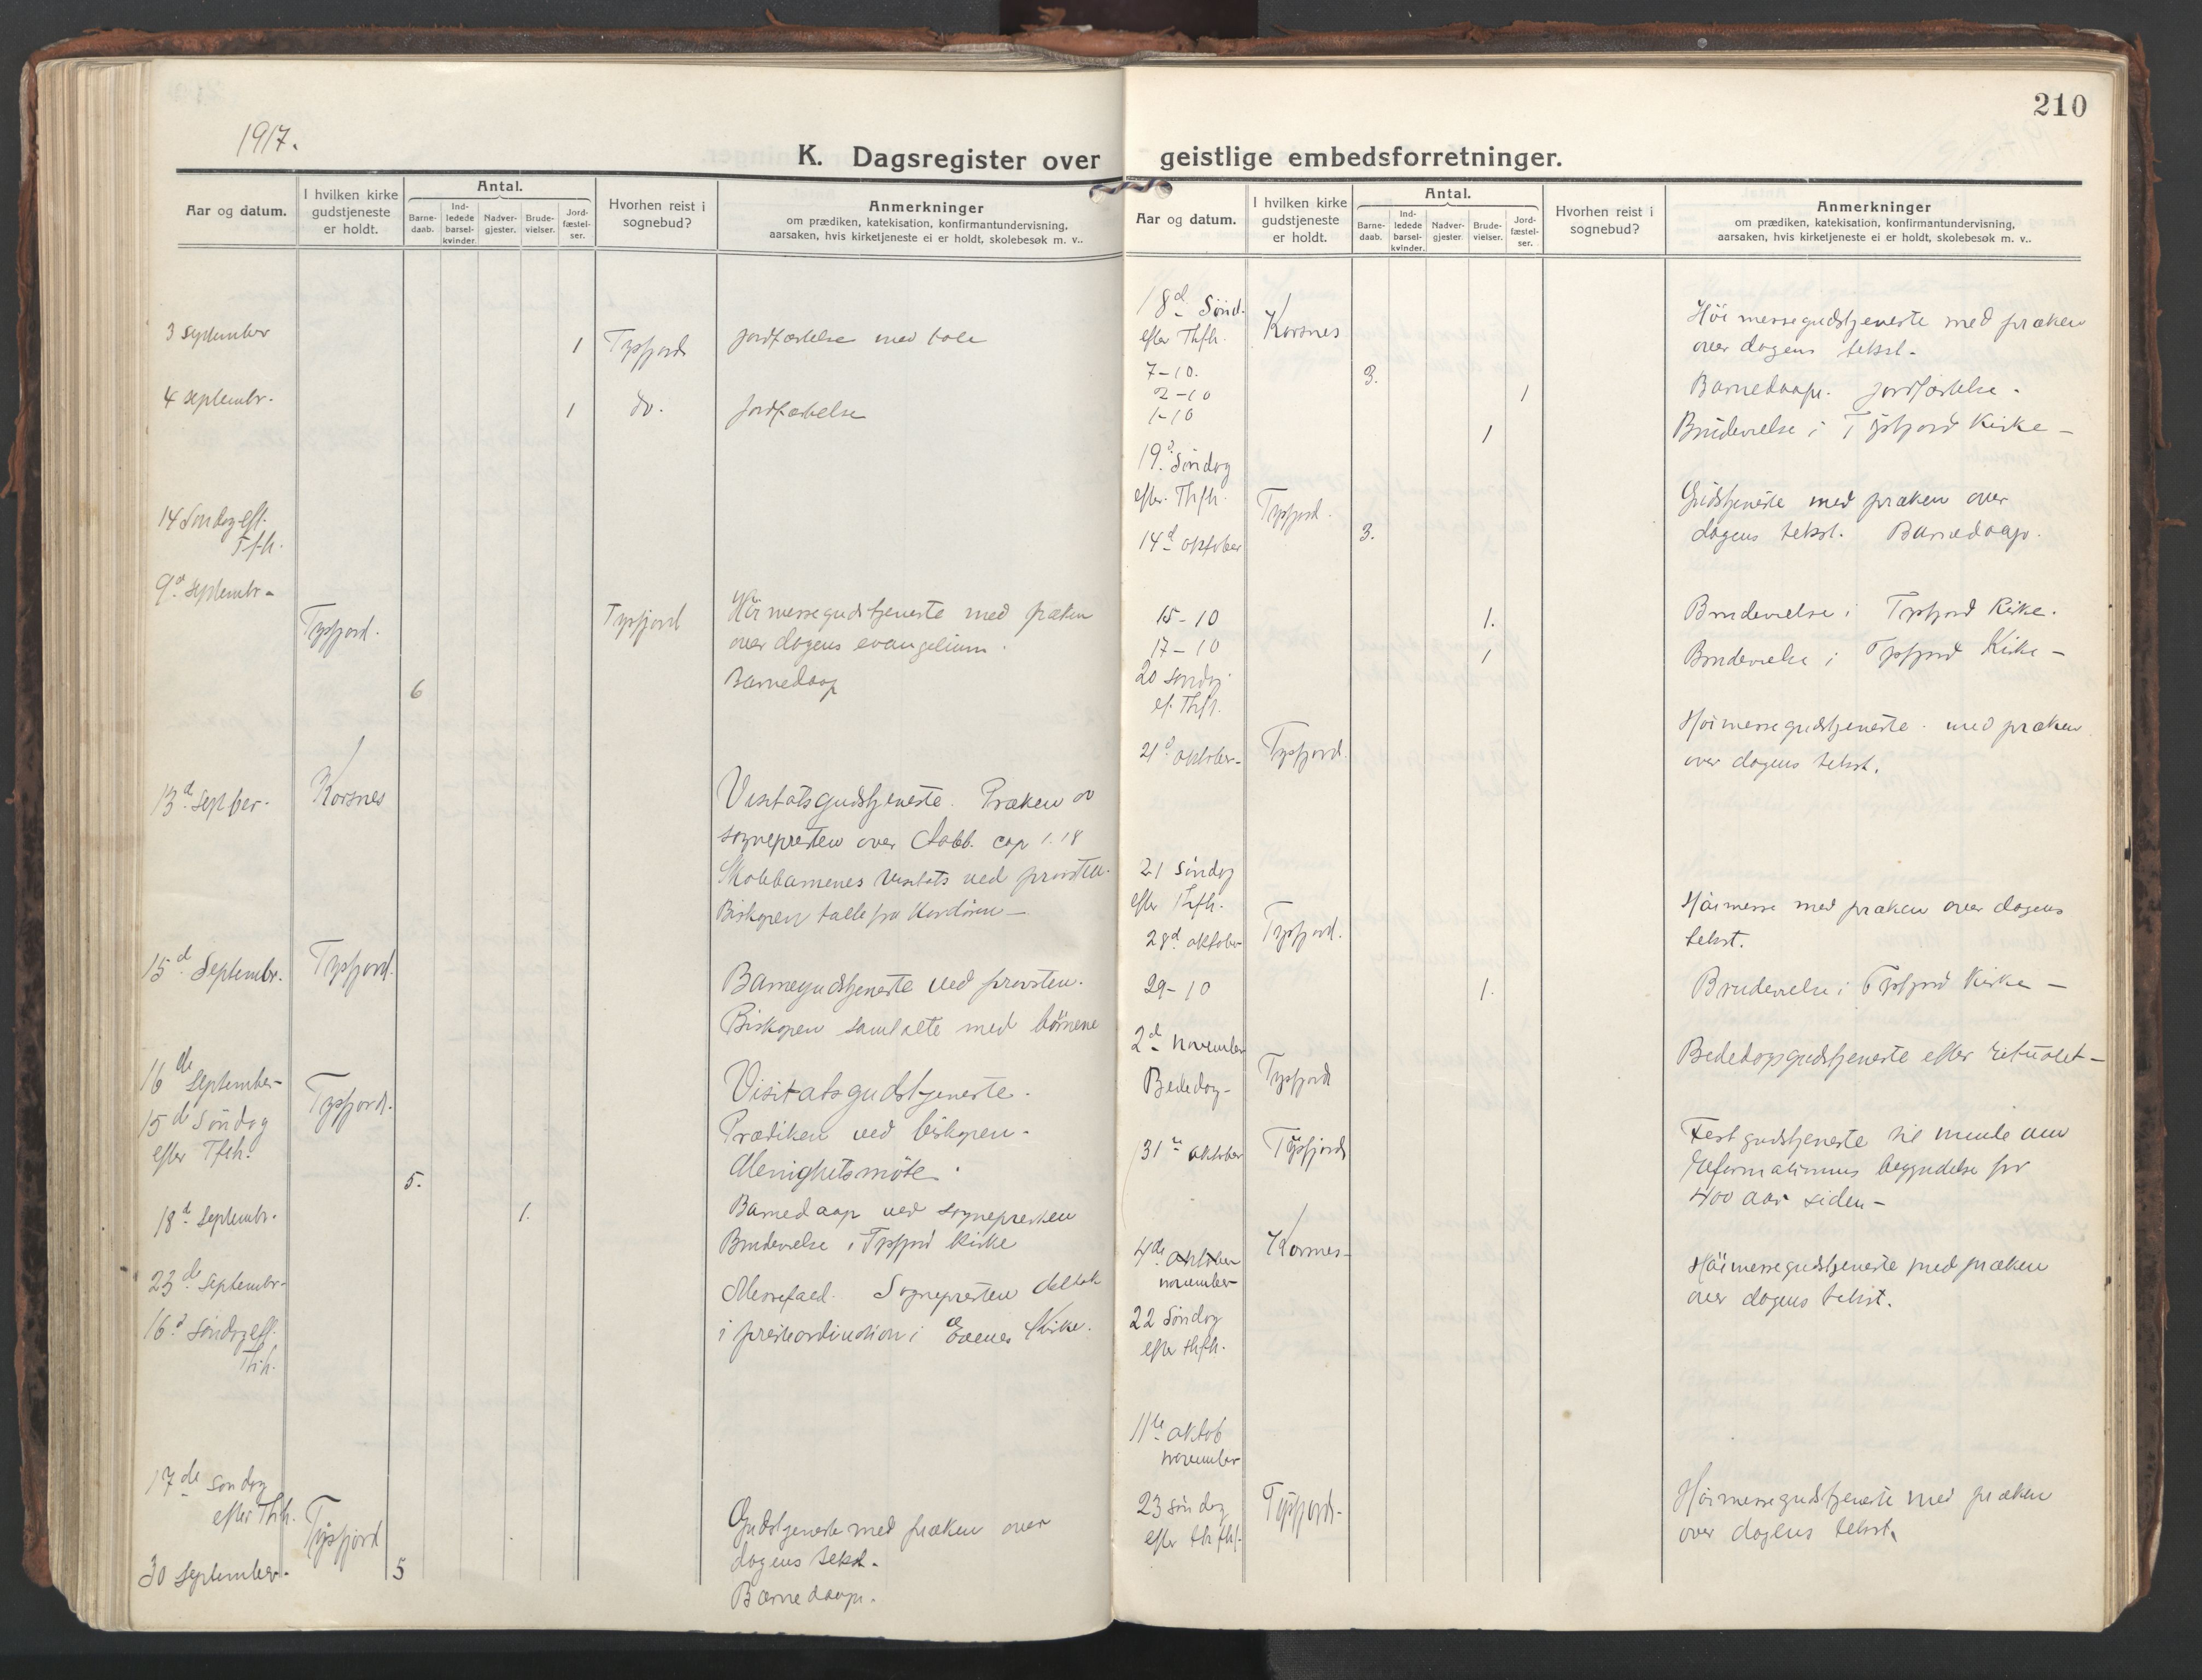 1917.
K. Dagsregister over
Aar og datum.
I hvilken kirke gudstjeneste er holdt.
Antal.
Barne-daab.
Ind-ledede barsel-kvinder.
Nadver-gjester.
Brude-vielser.
Jord-fæstel-ser.
Hvorhen reist i sognebud?
Anmerkninger
om prædiken, katekisation, konfirmantundervisning,
aarsaken, hvis kirketjeneste ei er holdt, skolebesøk m. v..
3 september 1 Tysfjord Jordfæstelse med tale
4 septembr. 1 do. Jordfæstelse
14 Søndag eft.
Tfh.
9d septembr-
Tysfjord. Tysfjord Høimessegudstjeneste med præken
over dagens evangelium.
6 Barnedaap
13d. septber. Korsnes Visitatsgudstjeneste. Præken av
sognepresten over Aabb. cap 1. 18
Skolebarnenes visitats ved provsten.
Biskopen talte fra kordøren –
15d Septembr. Tysfjord. Barnegudstjeneste ved provsten.
Biskopen samtalte med børnene
16de September- Tysfjord. Visitatsgudstjeneste.
15de Søndag Prædiken ved biskopen-
efter Tfth. Menighetsmöte.
5.
18d septembr. 1. Barnedaap ved sognepresten
Brudevielse i Tysfjord kirke
23de septembr- Messefald. Sognepresten deltok
16d søndag eft. i presteordination i Evenes Kirke.
Thfh.
17de søndag
efter Thfh. Tysfjord Gudstjeneste med præken over
dagens tekst.
30 september. 5 Barnedaap.
210
geistlige embedsforretninger.
Aar og datum.
I hvilken kirke gudstjeneste er holdt.
Antal.
Barne-daab.
Ind-ledede barsel-kvinder.
Nadver-gjester.
Brude-vielser.
Jord-fæstel-ser.
Hvorhen reist i sognebud?
Anmerkninger
om prædiken, katekisation, konfirmantundervisning,
aarsaken, hvis kirketjeneste ei er holdt, skolebesøk m. v..
18d Sønd. Korsnes Höimessegudstjeneste med præken
efter Thfh. over dagens tekst.
7-10. 3.
2-10 1 Barnedaap. Jordfæstelse.
1-10 1 Brudevielse i Tysfjord Kirke –
19d. Søndag
efter. Thfh. Tysfjord. Gudstjeneste med præken over
14d oktober 3. dagens tekst. Barnedaap.
15-10 1. Brudevielse i Tysfjord Kirke.
17-10 1 Brudevielse i Tysfjord Kirke –
20 søndag
ef. Thfh. Høimessegudstjeneste med præken
21d oktober- Tysfjord. over dagens tekst.
21 Søndag
efter Thfh. Høimesse med præken over dagens
28d oktober Tysfjord. tekst.
29-10 1. Brudevielse i Tysfjord Kirke –
2d November Bededagsgudstjeneste efter ritualet –
Bededag- Tysfjord
31te oktober Tysfjord Festgudstjeneste til minde om
reformationens begyndelse for
400 aar siden –
4de oktober Korsnes-
november Höimessegudstjeneste med præken
22 Søndag over dagens tekst.
efter thfh.
11te oktob
november
23 søndag Tysfjord- Høimessegudstjeneste med præken
efter thfh. over dagens tekst.